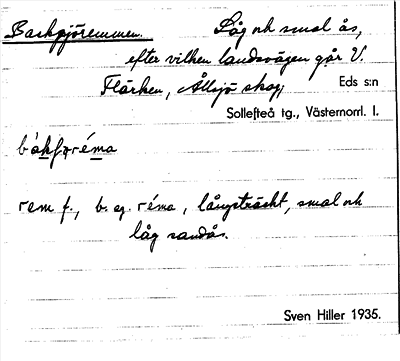 Backfjöremmen. Låg och smal ås,
efter vilken landsvägen går V.
Flärken, Ållsjö skog, Eds s:n
Sollefteå tg., Västernorrl. l.
rem f., b. sg. réma, långsträckt, smal och
låg sandås.
Sven Hiller 1935.